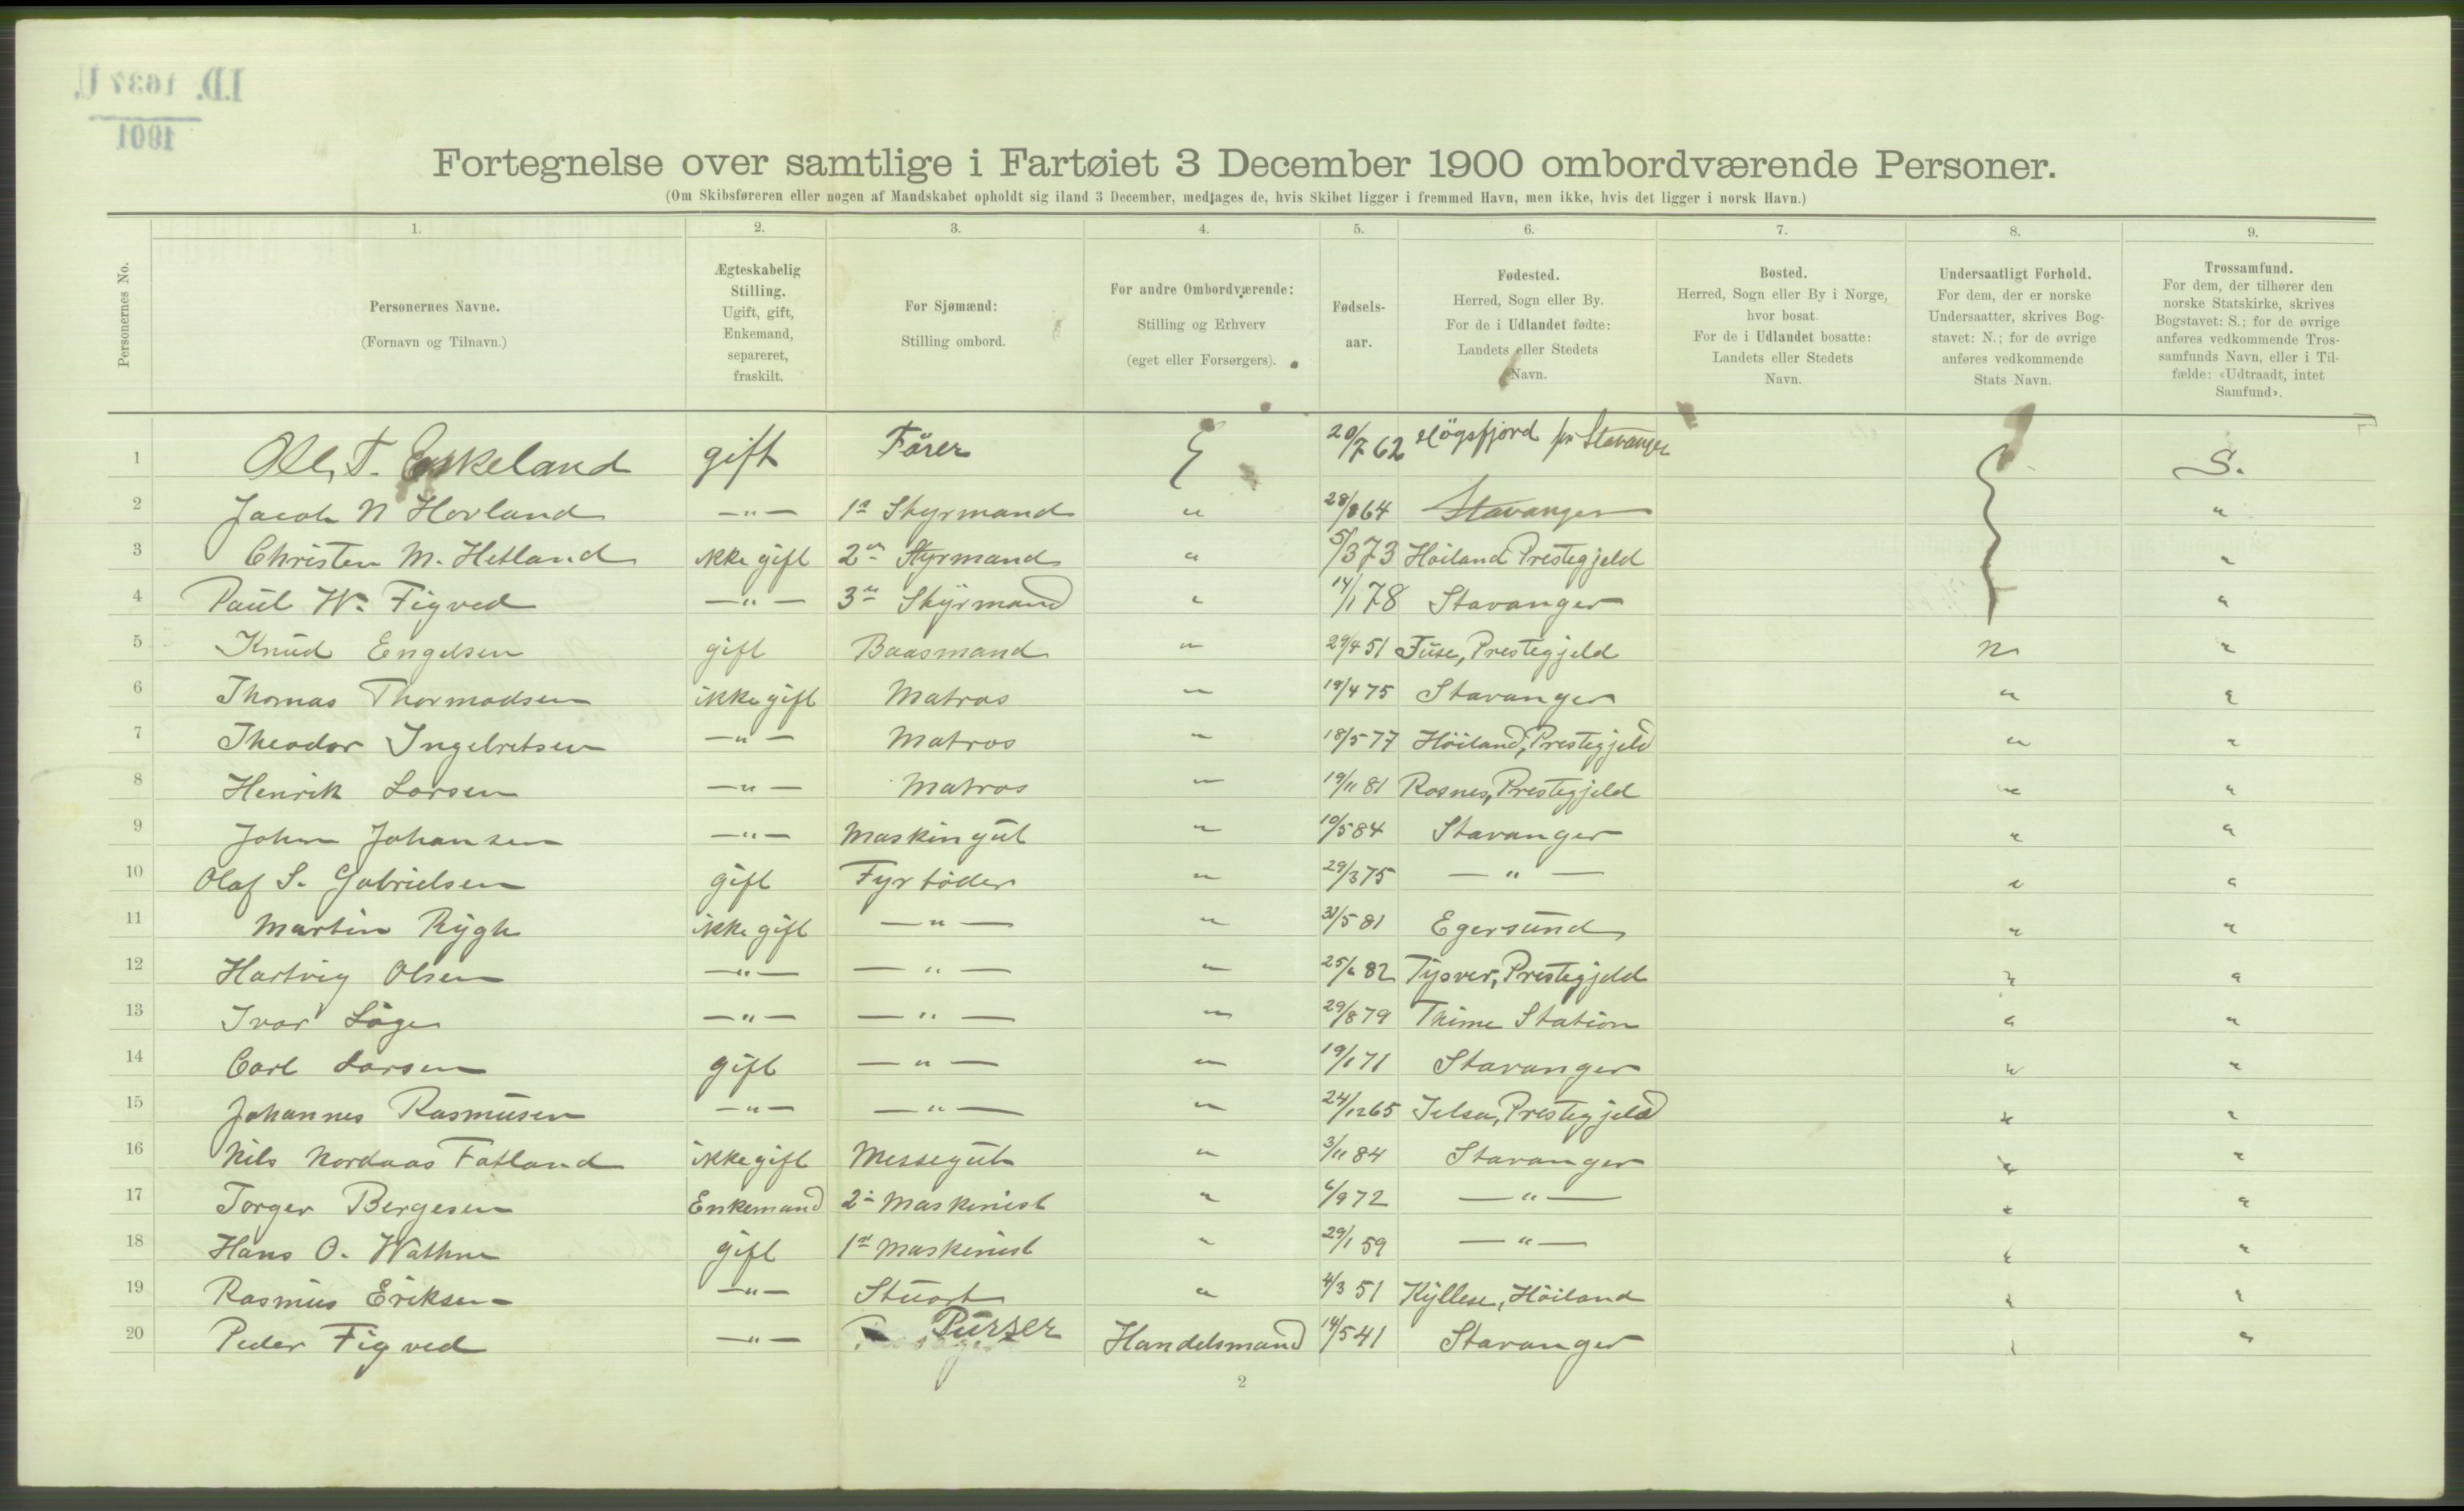 I.D. 1637 U.
1901
Fortegnelse over samtlige i Fartøiet 3 December 1900 ombordværende Personer.
(Om Skibsføreren eller nogen af Mandskabet opholdt sig iland 3 December, medtages de, hvis Skibet ligger i fremmed Havn, men ikke, hvis det ligger i norsk Havn.)
Personernes No.
1.
Personernes Navne.
(Fornavn og Tilnavn.)
2.
Ægteskabelig
Stilling.
Ugift, gift,
Enkemand,
separeret,
fraskilt.
3.
For Sjømænd:
Stilling ombord.
4.
For andre Ombordværende:
Stilling og Erhverv
(eget eller Forsørgers).
5.
Fødsels-
aar.
6.
Fødested.
Herred, Sogn eller By.
For de i Udlandet fødte:
Landets eller Stedets
Navn.
7.
Bosted.
Herred, Sogn eller By i Norge,
hvor bosat.
For de i Udlandet bosatte:
Landets eller Stedets
Navn.
8.
Undersaatligt Forhold.
For dem, der er norske
Undersaatter, skrives Bog-
stavet: N.; for de øvrige
anføres vedkommende
Stats Navn.
9.
Trossamfund.
For dem, der tilhører den
norske Statskirke, skrives
Bogstavet: S.; for de øvrige
anføres vedkommende Tros-
samfunds Navn, eller i Til-
fælde: «Udtraadt, intet
Samfund».
1 Ole T. Eskeland gift Förer 20/7 62 Högsfjord pr Stavanger S.
2 Jacob N Hovland —"— 1ste Styrmand " 28/8 64 Stavanger "
3 Christen M. Hetland ikke gift 2den Styrmand " 5/3 73 Höiland Prestegjeld "
4 Paul W. Figved —"— 3die Styrmand " 14/1 78 Stavanger "
5 Knud Engelsen gift Baasmand " 29/4 51 Fuse, Prestegjeld N "
6 Thomas Thormodsen ikke gift Matros " 19/4 75 Stavanger " "
7 Theodor Ingebretsen —"— Matros " 18/5 77 Höiland, Prestegjeld " "
8 Henrik Larsen —"— Matros " 19/11 81 Prestegjeld " "
9 John Johansen —"— Maskingut " 10/5 84 Stavanger " "
10 Olaf S. Gabrielsen gift Fyrböder " 29/3 75 —"— " "
11 Martin Rygh ikke gift —"— " 31/5 81 Egersund " "
12 Hartvig Olsen —"— —"— " 25/6 82 Tysver, Prestegjeld " "
13 Ivar Löge —"— —"— " 29/8 79 Thime Station " "
14 Carl Larsen gift —"— " 19/1 71 Stavanger " "
15 Johannes Rasmusen —"— —"— " 24/12 65 Jelsa, Prestegjeld " "
16 Nils Nordaas Fatland ikke gift Messegut " 3/11 84 Stavanger " "
17 Torger Bergesen Enkemand 2den Maskinist " 6/9 72 —"— " "
18 Hans O. Wathne gift 1ste Maskinist " 29/1 59 —"— " "
19 Rasmus Eriksen —"— Stuart " 4/3 51 Kyllese, Höiland " "
20 Peder Figved —"— Purser Handelsmand 14/5 41 Stavanger " "
2